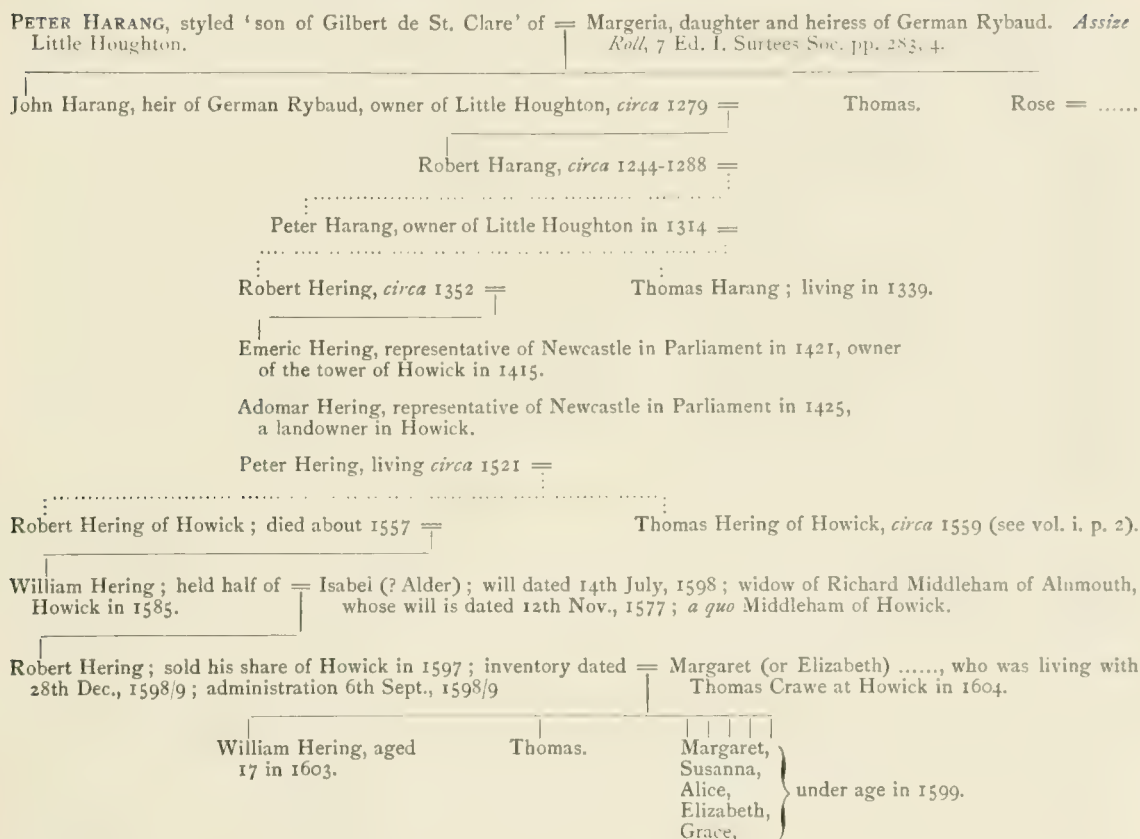 PETER HARANG, styled ‘son of Gilbert de St. Clare’ of = Margeria, daughter and heiress of German Rybaud. Assize
Little Houghton. Roll, 7 Ed. I. Surtees Soc. pp. 283, 4.
John Harang, heir of German Rybaud, owner of Little Houghton, circa 1279 = Thomas. Rose = ......
Robert Harang, circa 1244-1288 =
Peter Harang, owner of Little Houghton in 1314 =
Robert Hering, circa 1352 = Thomas Harang ; living in 1339.
Emeric Hering, representative of Newcastle in Parliament in 1421, owner
of the tower of Howick in 1415.
Adomar Hering, representative of Newcastle in Parliament in 1425,
a landowner in Howick.
Peter Hering, living circa 1521 =
Robert Hering of Howick ; died about 1557 = Thomas Hering of Howick, circa 1559 (see vol. i. p. 2).
William Hering ; held half of = Isabel (? Alder) ; will dated 14th July, 1598 ; widow of Richard Middleham of Alnmouth,
Howick in 1585. whose will is dated 12th Nov., 1577 ; a quo Middleham of Howick.
Robert Hering ; sold his share of Howick in 1597 ; inventory dated = Margaret (or Elizabeth) ......, who was living with
28th Dec., 1598/9 ; administration 6th Sept., 1598/9 Thomas Crawe at Howick in 1604.
William Hering, aged Thomas. Margaret,
17 in 1603. Susanna,
Alice, under age in 1599.
Elizabeth,
Grace,